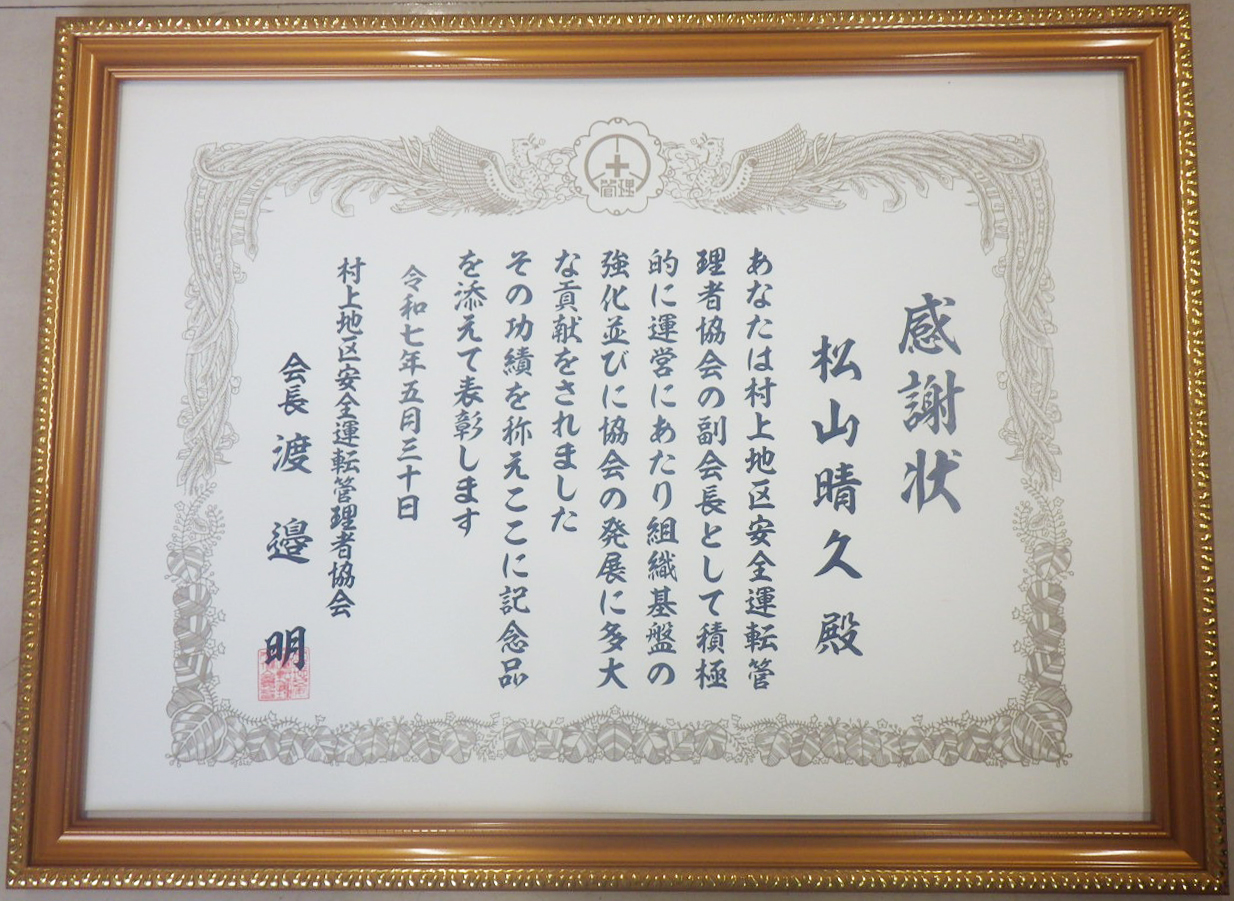 管理
感謝状
松山晴久殿
あなたは村上地区安全運転管
理者協会の副会長として積極
的に運営にあたり組織基盤の
強化並びに協会の発展に多大
な貢献をされました
その功績を称えここに記念品
を添えて表彰します
令和七年五月三十日
村上地区安全運転管理者協会
会長 渡邉 明